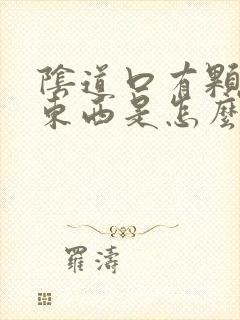 陰道口有顆
東西是怎麼
羅濤